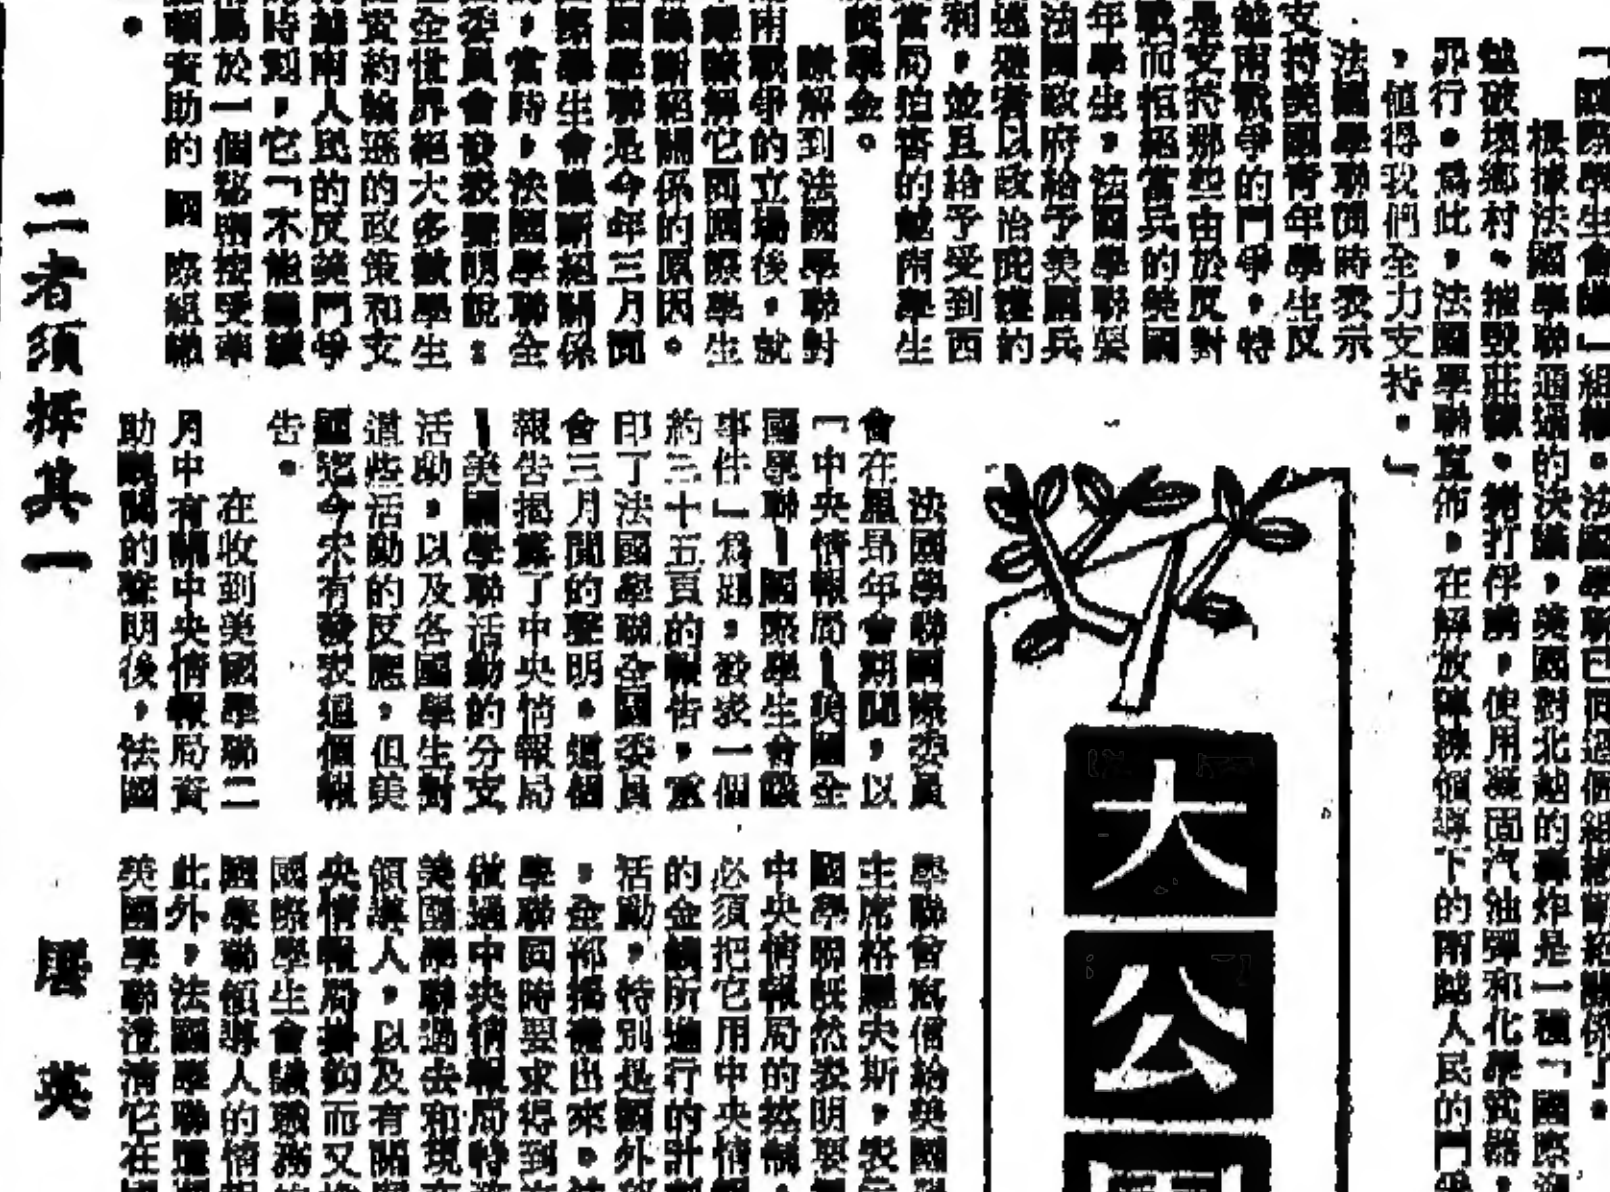 「國際學生會議」組織。法國學聯已同這個組織斷絕關係了。
根據法國學聯通過的決議，美國對北越的轟炸是一種「國際
破壞鄉村、摧毀莊稼、拷打俘虜，使用凝固汽油彈和化學武器，
罪行。為此，法國學聯宣佈，在解放陣線領導下的南越人民的鬥爭
，值得我們全力支持。」
法國學聯同時表示
支持美國青年學生反
越南戰爭的鬥爭，特
是支持那些由於反對
戰而拒絕當兵的美國
年學生，法國學聯要
法國政府給予美國兵
逃避者以政治庇護的
利，並且給予受到西
當局迫害的越南學生
獎學金。
瞭解到法國學聯對
南戰爭的立場後，就
瞭解它同國際學生
議斷絕關係的原因。
國學聯是今年三月間
際學生會議斷絕關係
，當時，法國學聯全
委員會發表聲明說：
全世界絕大多數學生
實約翰遜的政策和支
越南人民的反美鬥爭
時刻，它「不能繼續
屬於一個秘密接受華
頓資助的國際組織
。
大公
法國學聯國際委員
會在里昂年會期間，以
「中央情報局—美國全
國學聯—國際學生會議
事件」為題，發表一個
約三十五頁的報告，重
印了法國學聯全國委員
會三月間的聲明。這個
報告揭露了中央情報局
—美國學聯活動的分支
活動，以及各國學生對
這些活動的反應，但美
國迄今未有發表這個報
告。
在收到美國學聯二
月中有關中央情報局資
助機關的聲明後，法國
學聯曾寫信給美國
主席格羅夫斯，表
國學聯既然表明要
中央情報局的控制，
必須把它用中央情
的金錢所進行的計
活動，特別是國外
，全部揭露出來。
學聯同時要求得到
做過中央情報局特
美國學聯過去和現
領導人，以及有關
央情報局掛鈎而又
國際學生會議職務
國學聯領導人的情報
此外，法國學聯還
美國學聯澄清它在
二者須擇其一
唐英